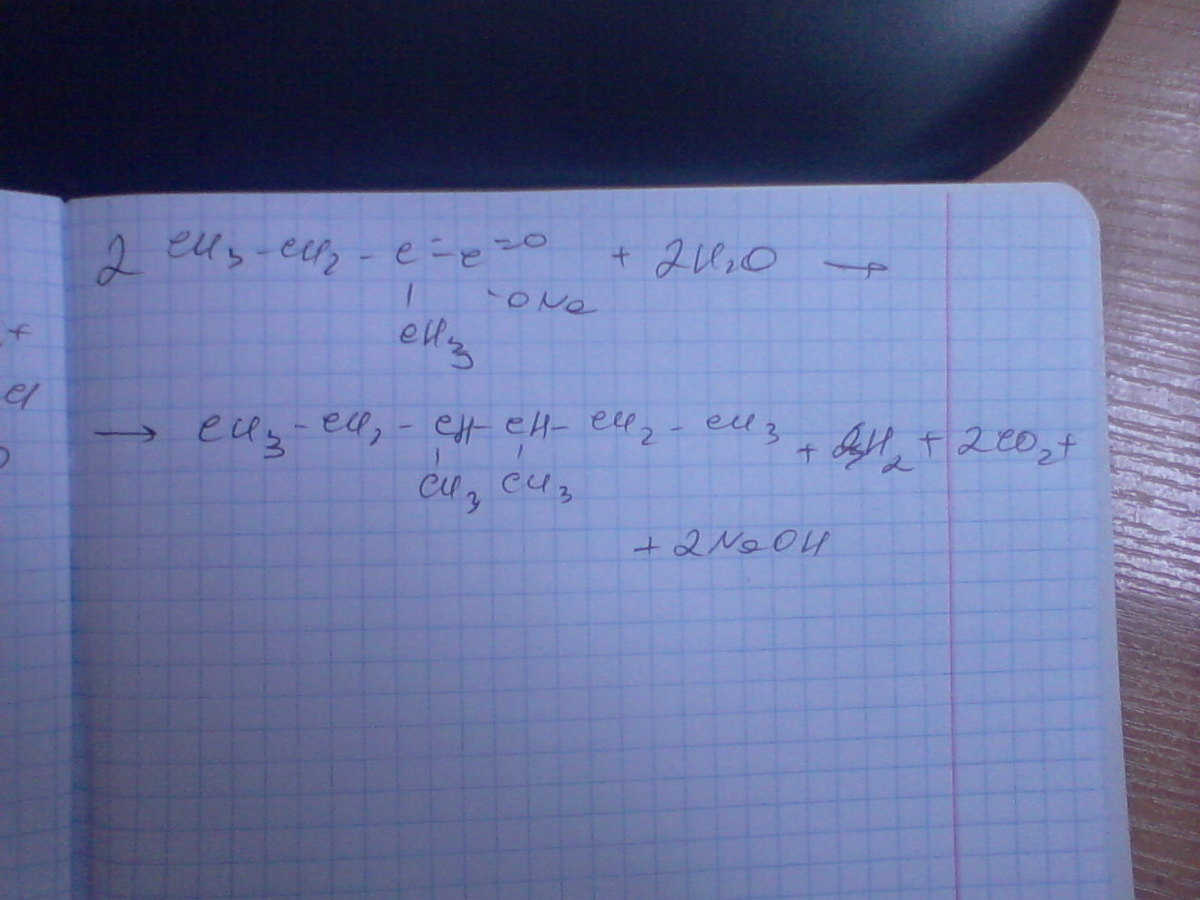 2 CH3-CH2-C=C=O + 2H2O →
| -ONa
CH3
→ CH3-CH2-CH-CH-CH2-CH3 + H2 + 2CO2 +
CH3 CH3
+ 2NaOH
+
Cl